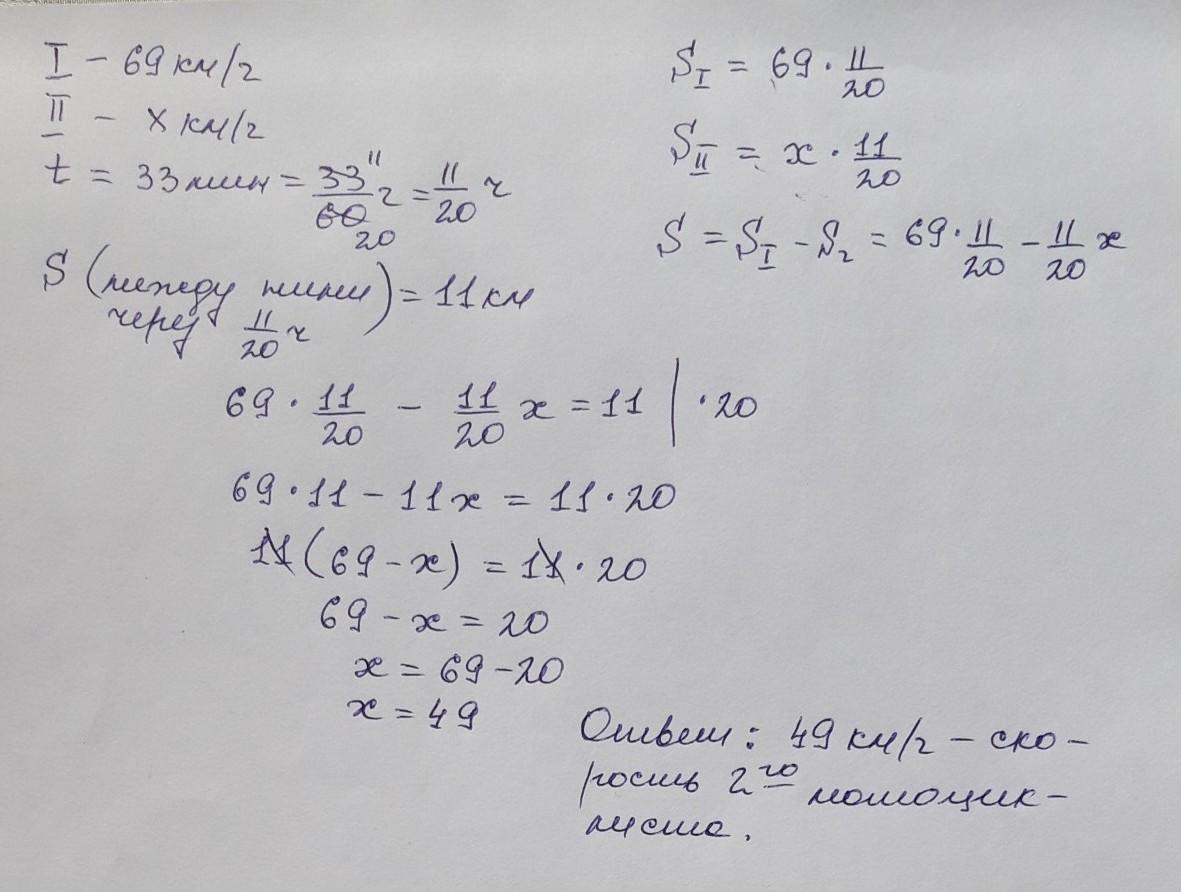 I – 69 км/ч
II – х км/ч
t = 33 мин = 33/60 ч = 11/20 ч
11
20
S (между ними) = 11 км
через 11/20 ч
S_I = 69 · 11/20
S_II = x · 11/20
S = S_I - S_2 = 69 · 11/20 - 11/20 x
69 · 11/20 - 11/20 x = 11 | · 20
69 · 11 - 11x = 11 · 20
11 (69 - x) = 11 · 20
69 - x = 20
x = 69 - 20
x = 49
Ответ: 49 км/ч – ско-
рость 2го мотоцик-
листа.